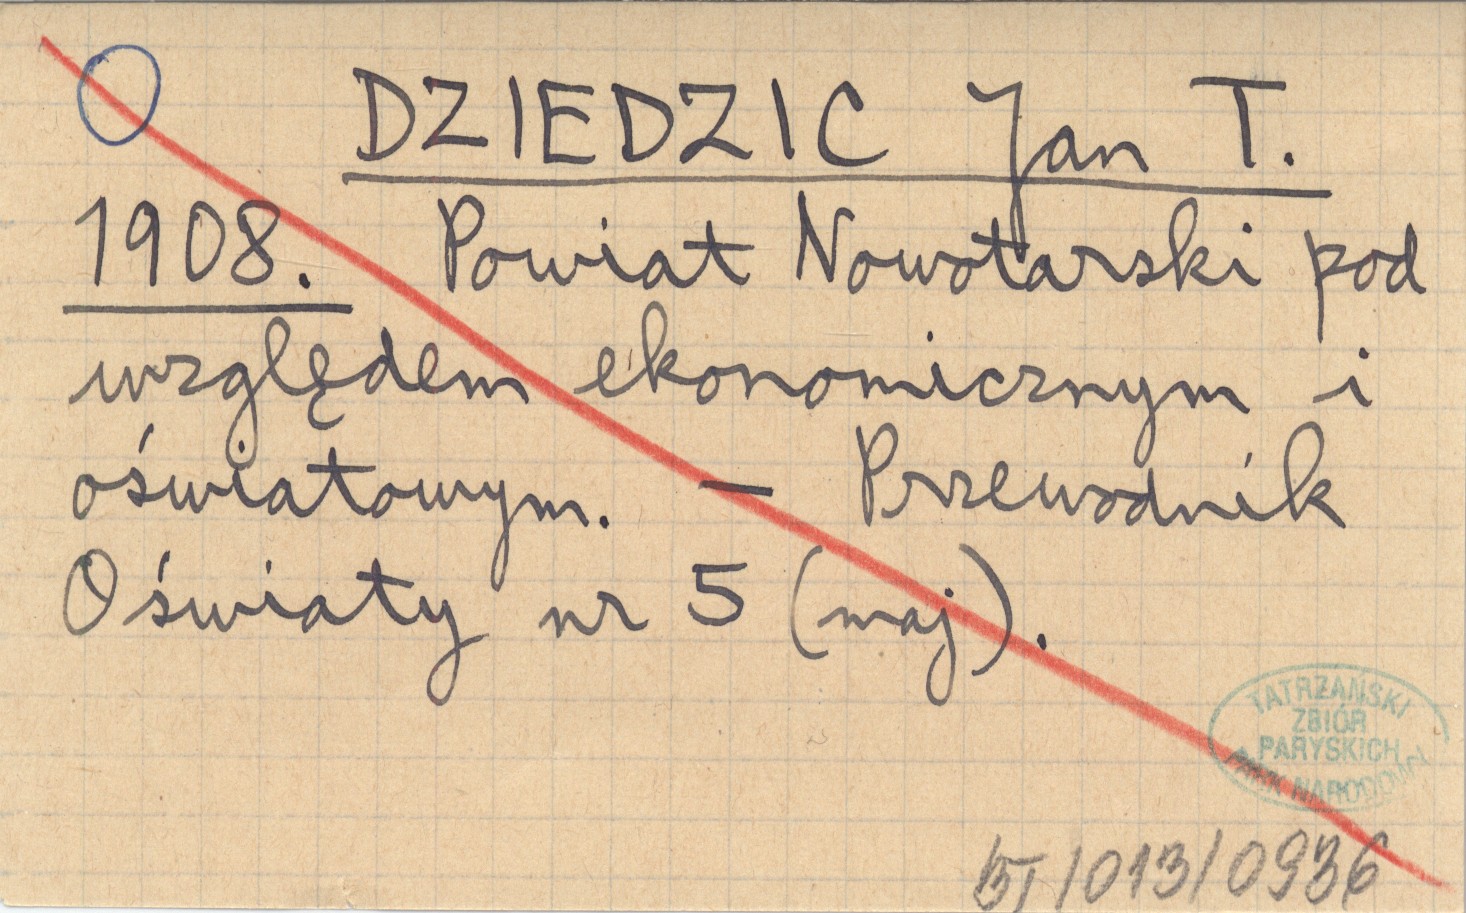 DZIEDZIC Jan T.
1908. Powiat Nowotarski pod
względem ekonomicznym i
oświatowym. — Przewodnik
Oświaty nr 5 (maj).
TATRZAŃSKI
ZBIÓR
PARYSKICH
PARK NARODOWY
BT/013/0936